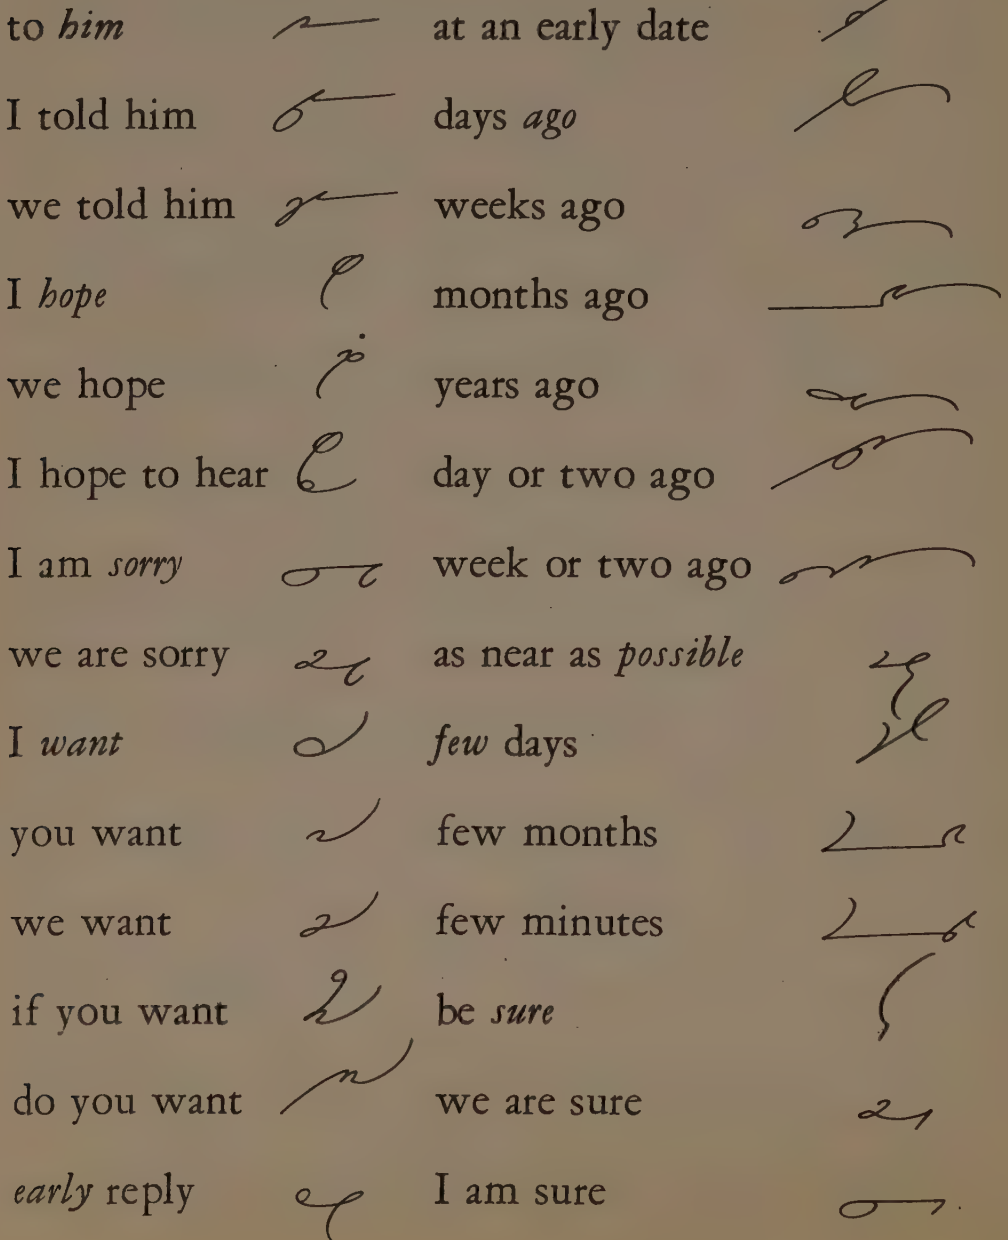 to him
I told him
we told him
I hope
we hope
I hope to hear
I am sorry
we are sorry
I want
you want
we want
if you want
do you want
early reply
at an early date
days ago
weeks ago
months ago
years ago
day or two ago
week or two ago
as near as possible
few days
few months
few minutes
be sure
we are sure
I am sure